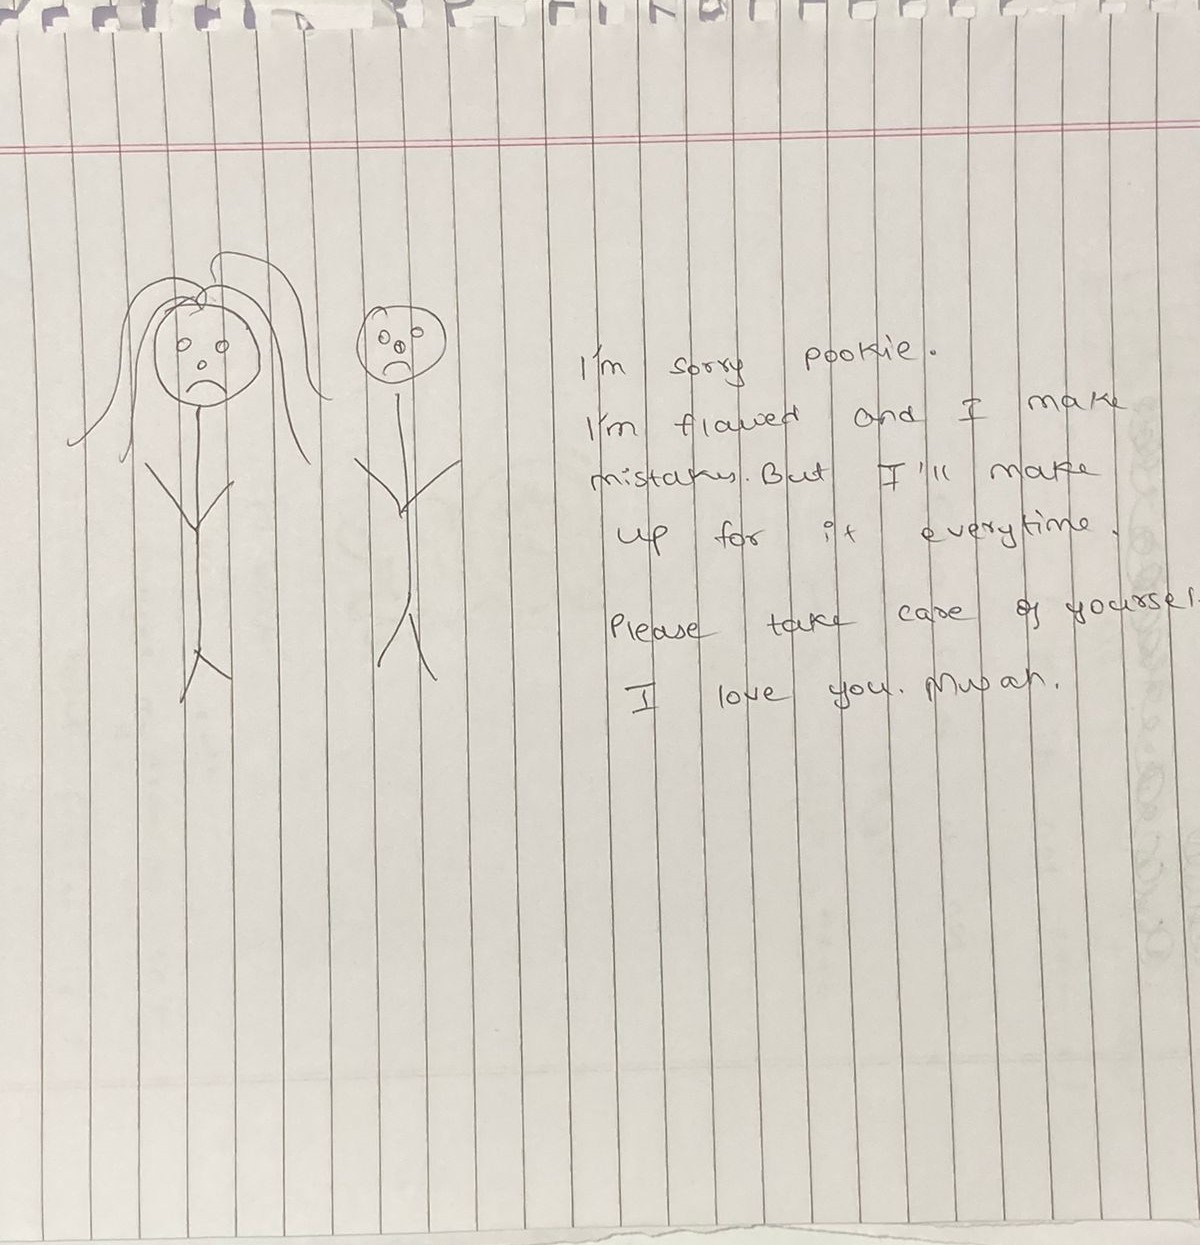 I'm sorry pookie.
I'm flawed and I make
mistakes. But I'll make
up for it everytime.
Please take care of yoursel
I love you. Muuah.